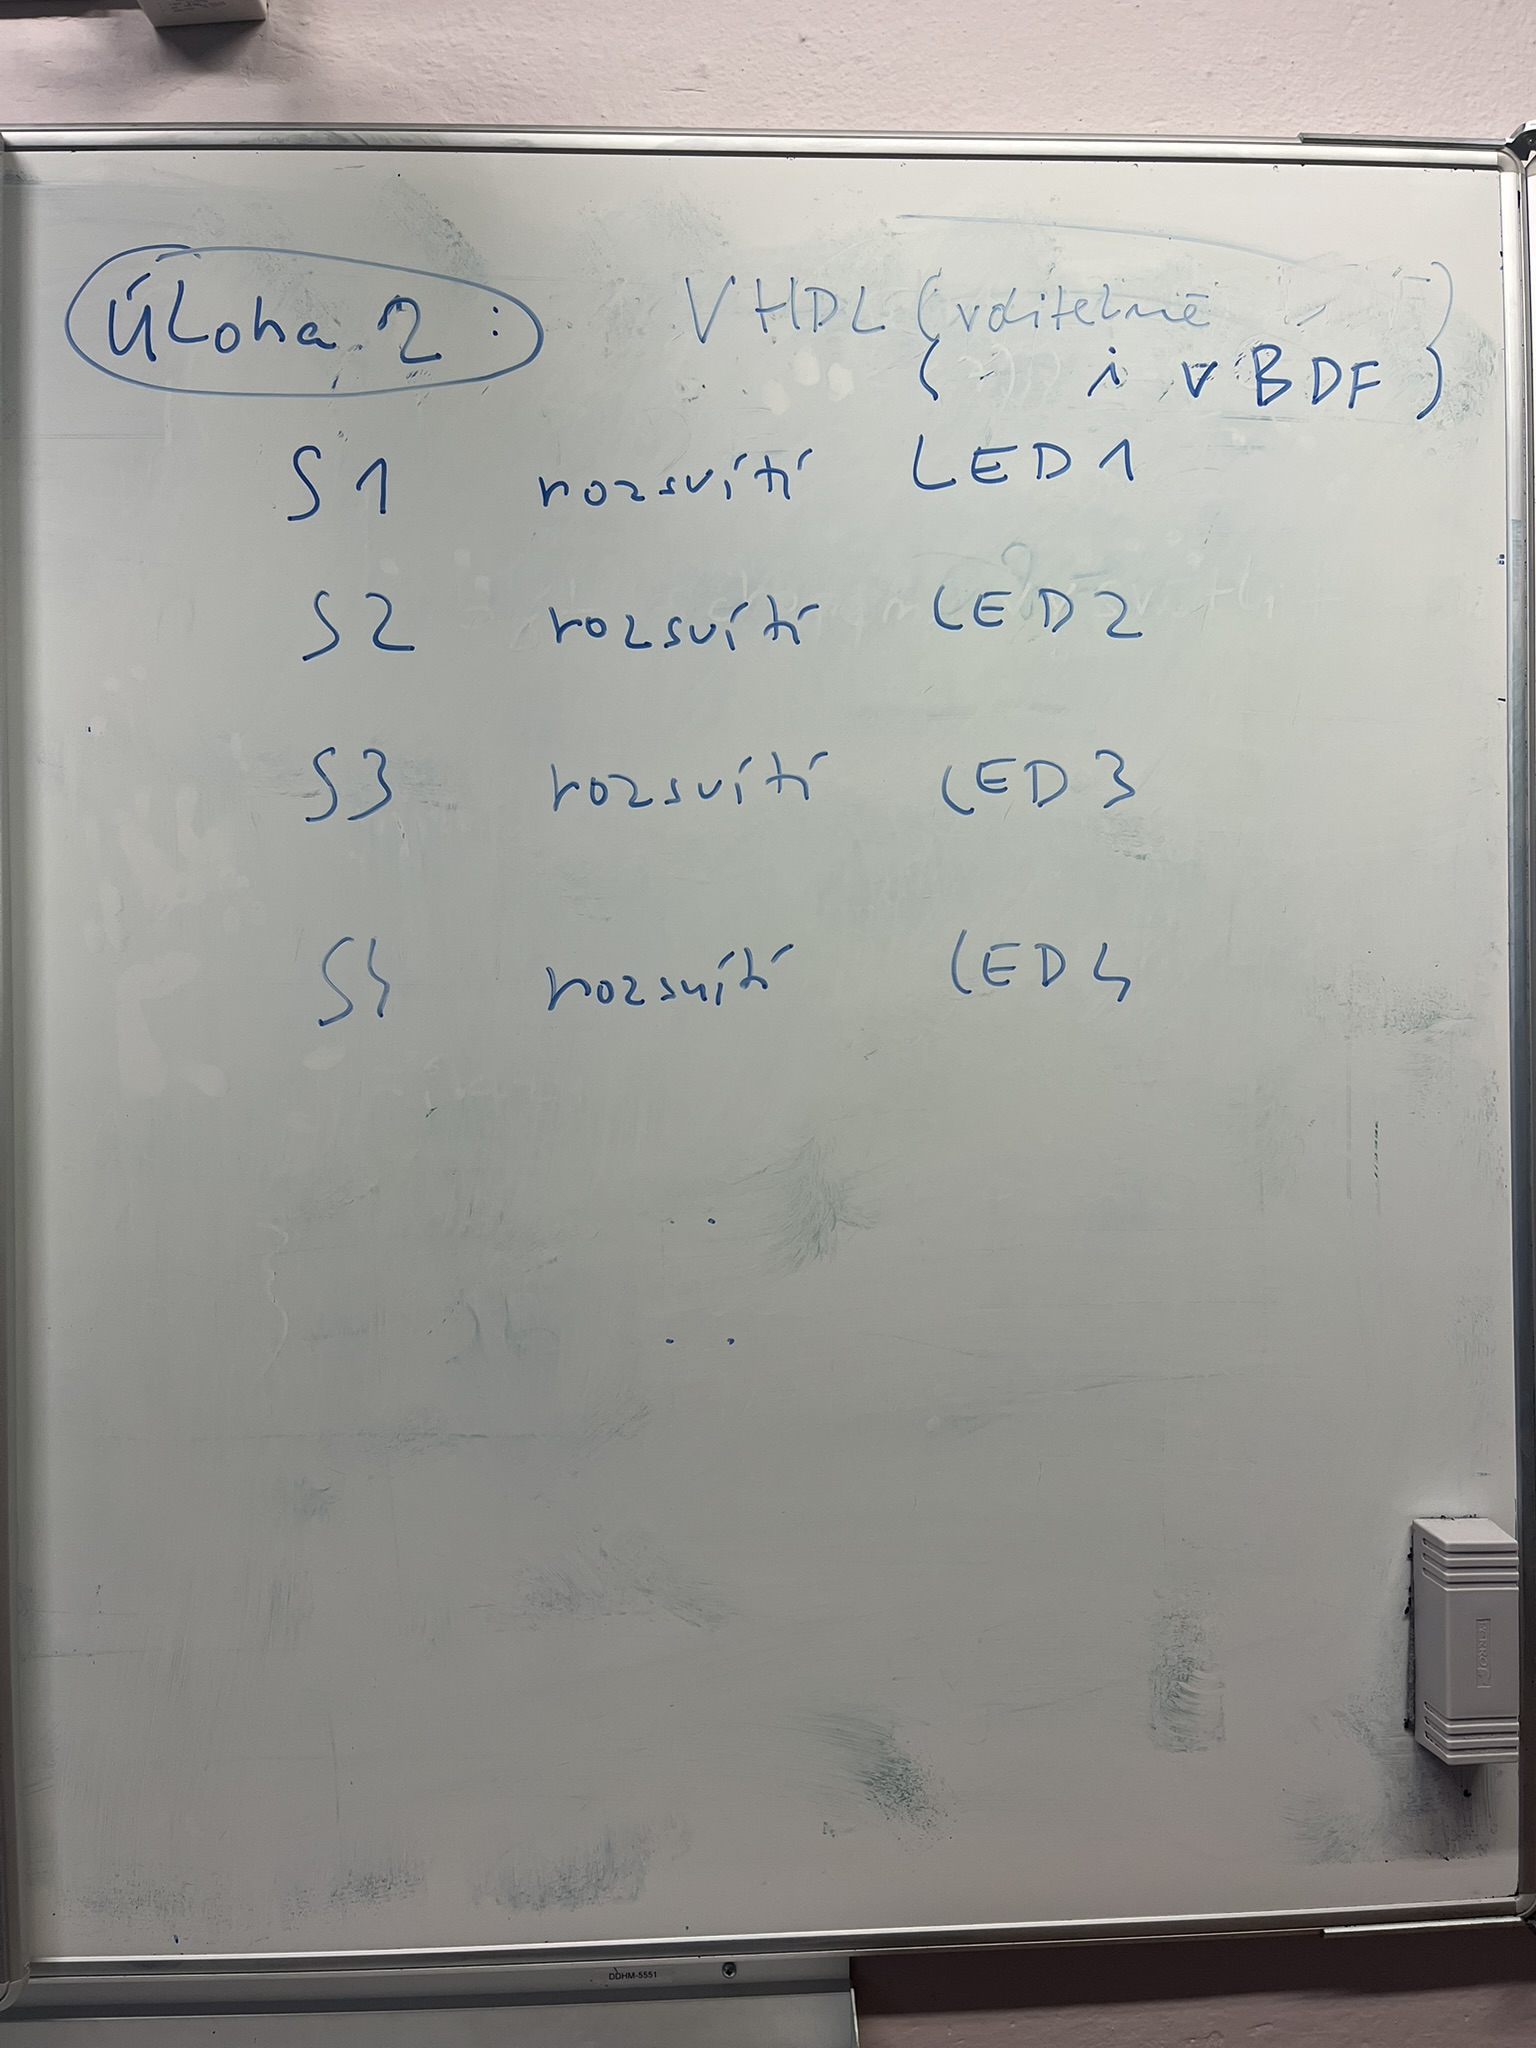 Úloha 2: VHDL (volitelně
( i v BDF )
S1 rozsvítí LED1
S2 rozsvítí LED2
S3 rozsvítí LED3
S4 rozsvítí LED4
DDHM-5551